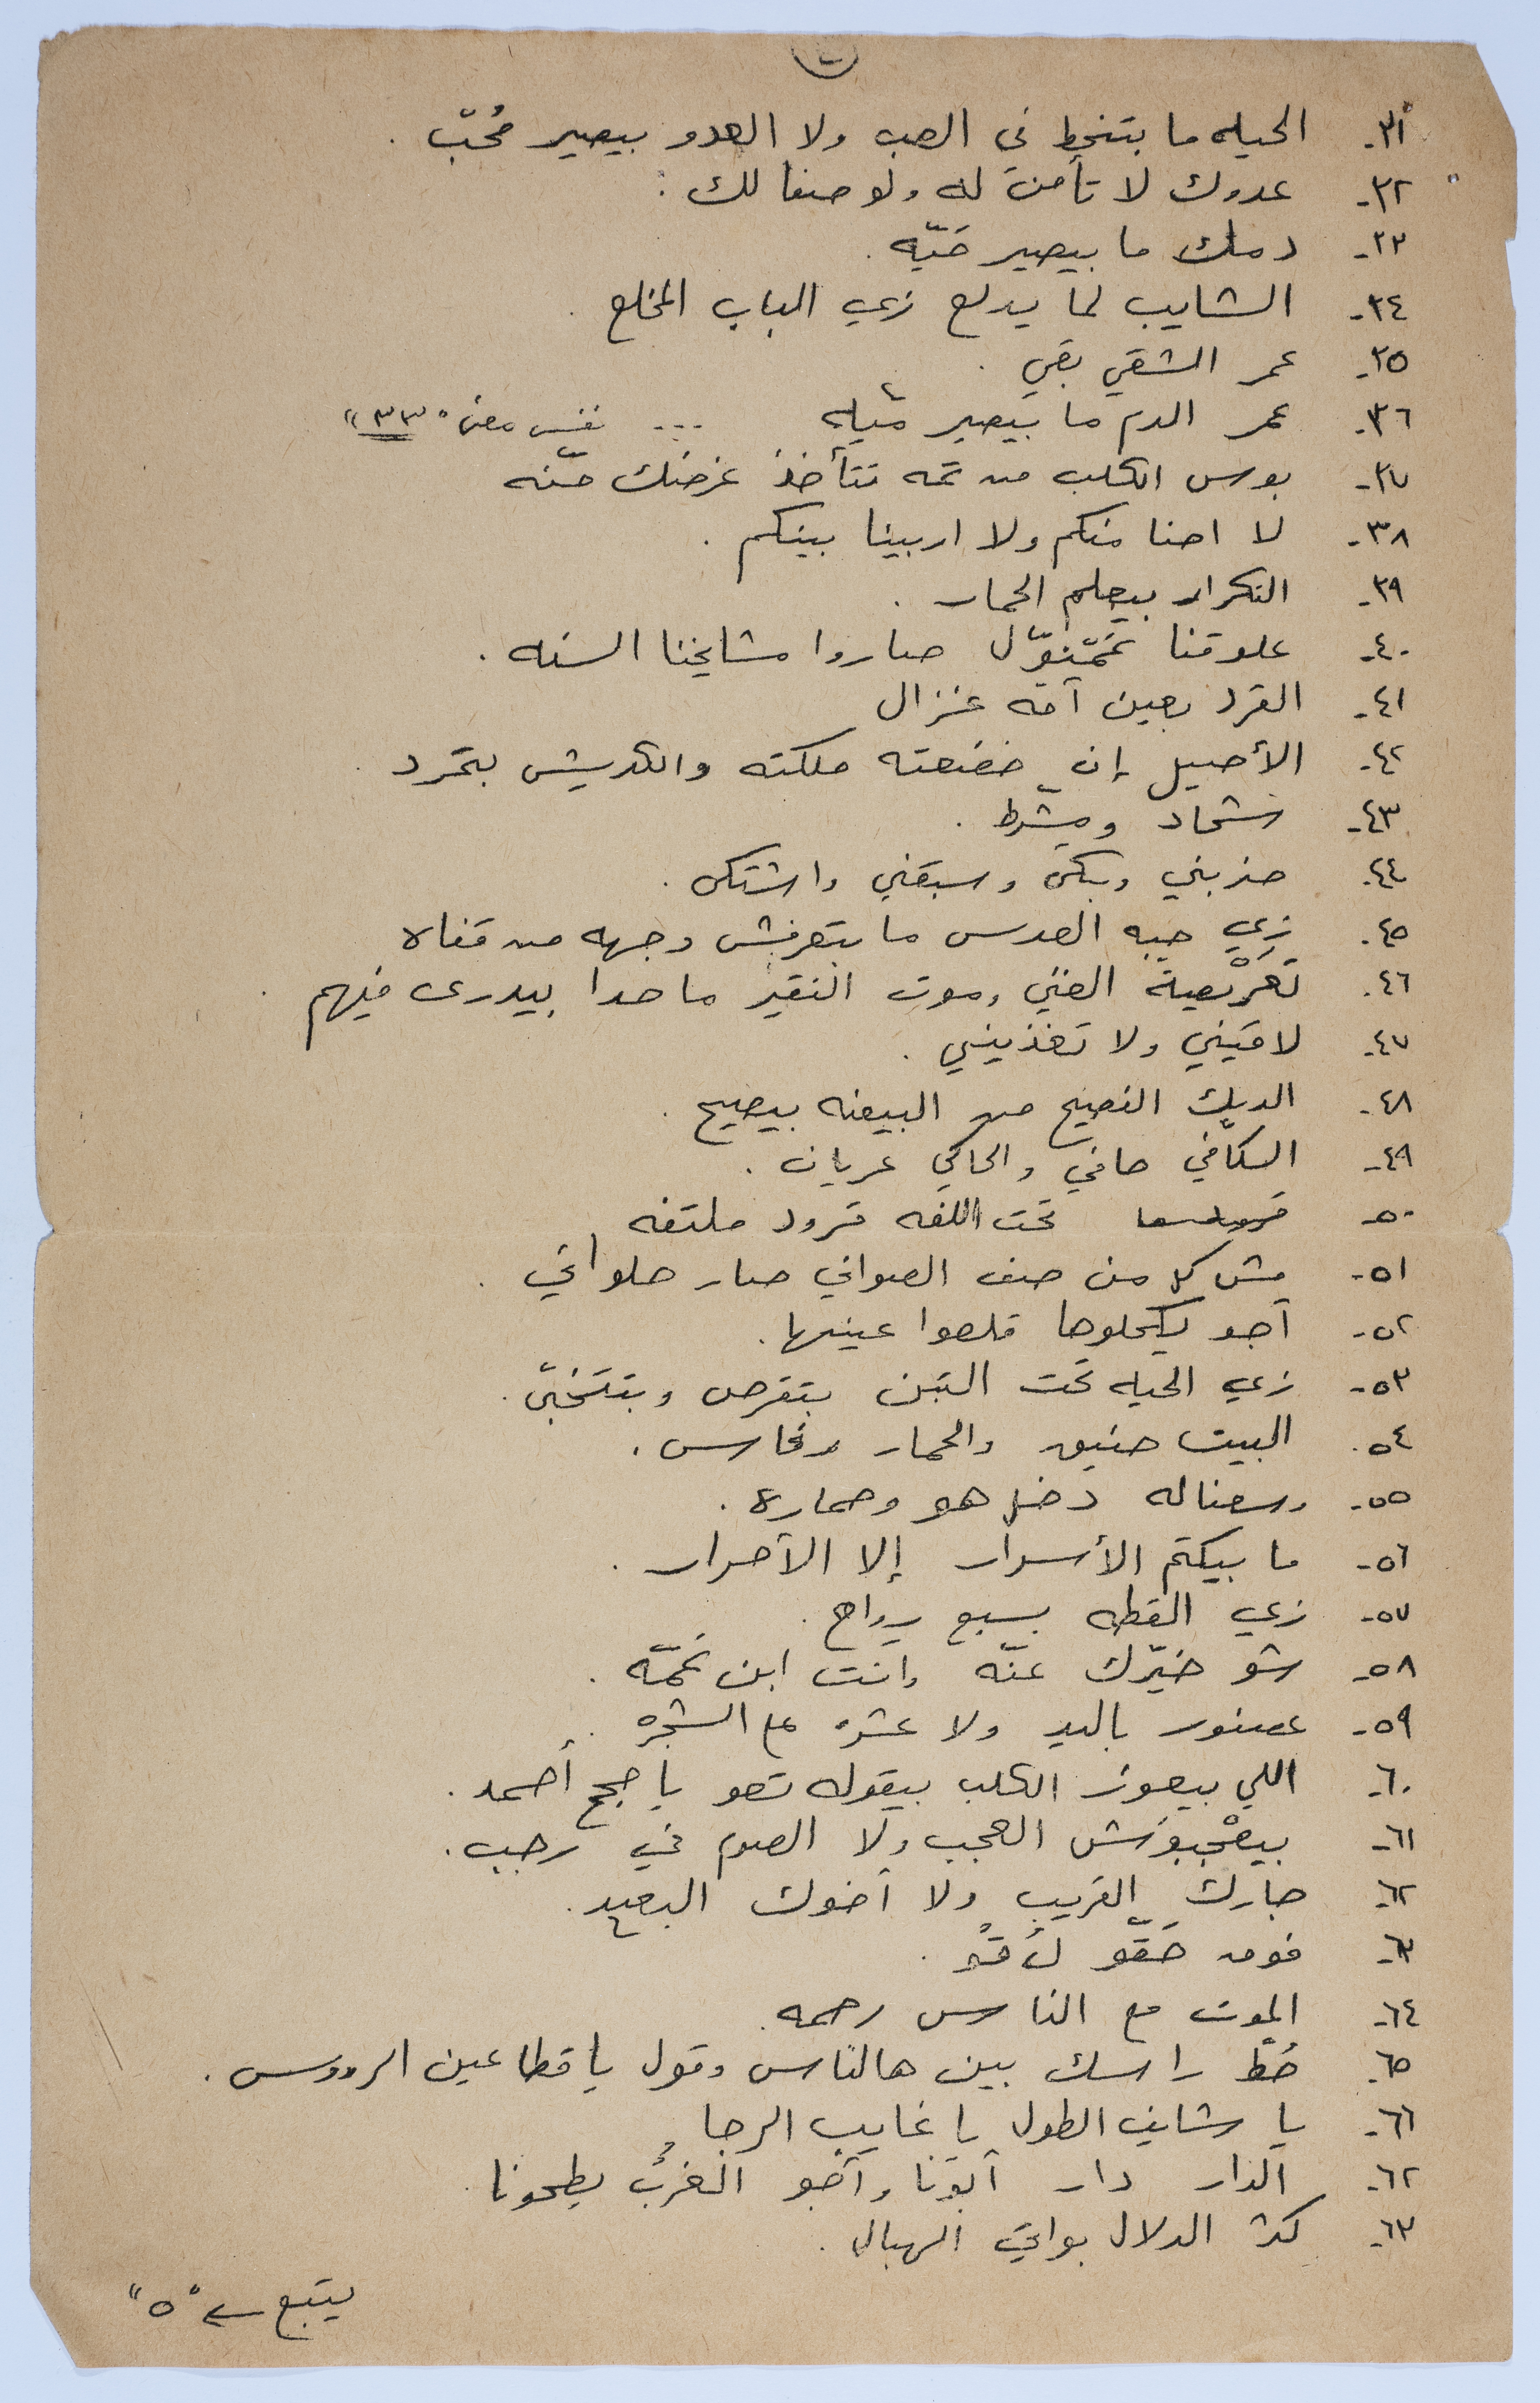 ٣١- الحيه ما بتنحط في العب ولا العدو بيصير مُحبّ .
٣٢- عدوك لا تأمن له ولو صفا لك .
٣٣- دمك ما بيصير ميّه .
٣٤- الشايب لما يدلع زي الباب المخلع .
٣٥- عمر الشقي بقي .
٣٦- عمر الدم ما بيصير ميّه ... نفس معنى "٣٣"
٣٧- بوس الكلب من تمه تتأخذ غرضك منّه
٣٨- لا احنا منكم ولا اربينا بينكم .
٣٩- التكرار بيعلم الحمار .
٤٠- علوقنا صاروا مشايخنا السنه .
٤١- القرد بعين أمه غزال
٤٢- الأصيل إن ملكته والكديش بتمرد .
٤٣- شحاد ومشرط .
٤٤- ضربني وبكى وسبقني واشتكى .
٤٥- زي حبه العدس ما بتعرفش وجهه من قفاه
٤٦- تعريْصِة الغني وموت الفقير ما حدا بيدرى فيهم .
٤٧- لاقيني ولا تغذيني .
٤٨- الديك الفصيح من البيضه بيصيح .
٤٩- السكّافي حافي والحاكي عريان .
٥٠- تحت اللفه قرود ملتفه
٥١- مش كل من صف الصواني صار حلواني .
٥٢- أجو يكحلوها قلعوا عينيها .
٥٣- زي الحيه تحت التبن بتقرص وبتتخبّى .
٥٤- البيت ضيق والحمار رفاس .
٥٥- وسعناله دخل هو وحماره .
٥٦- ما بيكتم الأسرار إلا الأحرار .
٥٧- زي القطه بسبع رواح .
٥٨- شو خيّرك عنّه وانت ابن عمّه .
٥٩- عصفور باليد ولا عشره ع الشجره .
٦٠- اللي بيعوز الكلب بيقوله تعو يا حج أحمد .
٦١- بيعْجبوش العجب ولا الصوم في رجب .
٦٢- جارك القريب ولا أخوك البعيد .
٦٣- فوق حَقّو لُقّو .
٦٤- الموت مع الناس رحمه .
٦٥- حُط راسك بين هالناس وقول يا قطاعين الرووس .
٦٦- يا شايف الطول يا خايب الرجا .
٦٢- الدار دار أبونا وأجو الغُرُب يطحونا .
٦٣- كثر الدلال بواتي الهبال .
يتبع ← "٥"